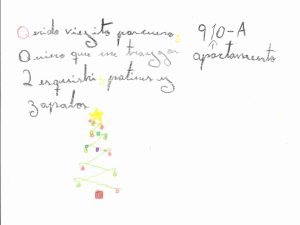 Querido viejito pascuero
Quiero que me traigan
2 esquichi patines y
zapatos
910-A
apartamento